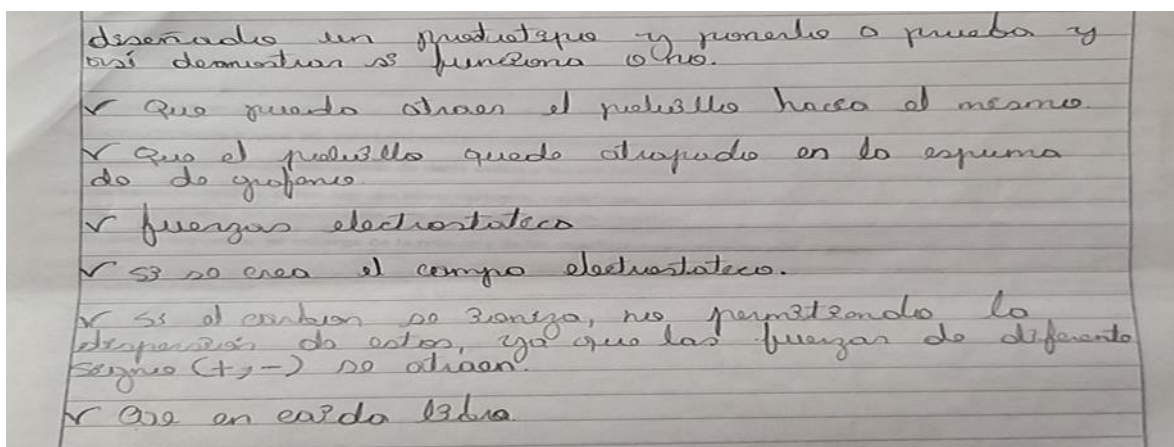 diseñado un prototipo y ponerlo a prueba y
así demostrar si funciona o no.
✓ Que pueda atraer el polvillo hacia el mismo.
✓ Que el polvillo quede atrapado en la espuma
de de grafeno
✓ fuerzas electrostatica
✓ si se crea el campo electrostatico.
✓ Si el carbon se ioniza, no permitiendo la
dispersión de estos, ya que las fuerzas de diferente
signo (+,-) se atraen.
✓ Cae en caida libre